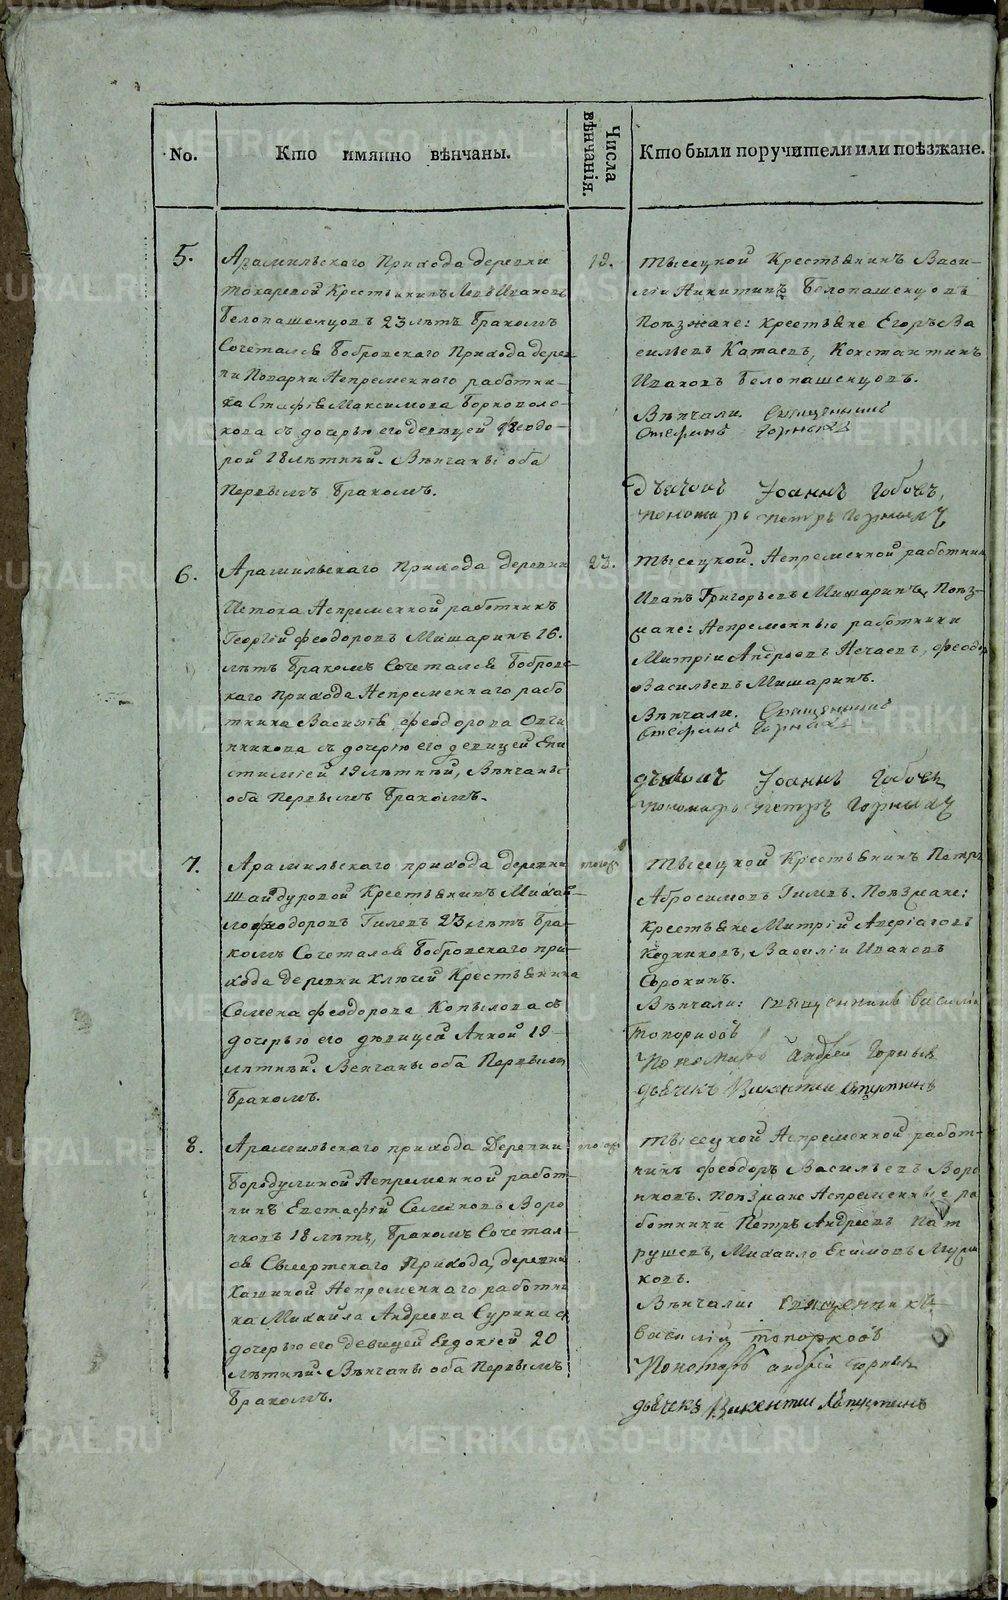 No.
Кто имянно вѣнчаны.
Числа вѣнчанія.
Кто были поручители или поѣзжане.
5.
Арамильскаго Прихода деревни
Токаревой Крестьянинъ Левъ Ивановъ
Белопашенцовъ 23 лѣтъ бракомъ
Сочетался Бобровскаго Прихода дерев
ни Поварни Непременнаго работни-
ка Максимова
кова съ дочерью его девицей Феодо-
рой 18 лѣтней. Вѣнчаны оба
Первымъ бракомъ.
Тысецкой Крестьянинъ Васи-
лій Никитинъ Белопашенцовъ
Поѣзжане: Крестьяне Егоръ Ва
сильевъ Катаевъ, Константинъ
Ивановъ Белопашенцовъ.
Вѣнчали. Священникъ
Стефанъ Горныхъ
Дьячокъ Іоаннъ
пономарь Петръ Горныхъ
6.
Арамильскаго Прихода деревни
Истока Непременной работникъ
Георгій Феодоровъ Мишаринъ
лѣтъ бракомъ Сочетался Бобровс-
каго прихода Непременнаго рабо
тника Василья Феодорова Овчи
нникова съ дочерью его девицей Епи
стиміей 19 лѣтней, Вѣнчаны
оба Первымъ бракомъ.
23.
Тысецкой. Непременной работникъ
Иванъ Григорьевъ Мишаринъ, Поѣз-
жане: Непременные работники
Митрій Андреевъ Нечаевъ, Феодоръ
Васильевъ Мишаринъ.
Вѣнчали. Священникъ
Стефанъ Горныхъ
дьячокъ Іоаннъ
пономарь Петръ Горныхъ
7.
Арамильскаго прихода деревни
Шайдуровой Крестьянинъ Михай-
ло Феодоровъ Гилевъ 23 лѣтъ бра-
комъ Сочетался Бобровскаго при-
хода деревни Ключей Крестьянина
Семена Феодорова Копылова съ
дочерью его девицей Анной 19-
лѣтней. Венчаны оба Первымъ
бракомъ.
тогоже
Тысецкой Крестьянинъ Петръ
Абросимовъ Гилевъ. Поѣзжане:
Крестьяне Митрій Аверіановъ
Василій Ивановъ
Сорокинъ.
Вѣнчали: Священникъ Василій
Топорковъ
Пономарь Андрей Горныхъ
дьячекъ Викентій Лепустинъ
8.
Арамильскаго прихода Деревни
Бородулиной Непременной работ-
никъ Евстафій Семеновъ Воро
нковъ 18 лѣтъ, бракомъ Сочетал-
ся Прихода, деревни
Кашиной Непременнаго работни
ка Михайла Андреева Сурина съ
дочерью его девицей Евдокіей 20
лѣтней. Вѣнчаны оба Первымъ
бракомъ.
тогоже
Тысецкой Непременной работ-
никъ Феодоръ Васильевъ Воро
нковъ. Поѣзжане Непременные ра
ботники Петръ Андреевъ Пат
рушевъ, Михайло Екимовъ
ковъ.
Вѣнчали: Священникъ
Василій Топорковъ
Пономарь Андрей Горныхъ
дьячекъ Викентій Лепустинъ
METRIKI.GASO-URAL.RU